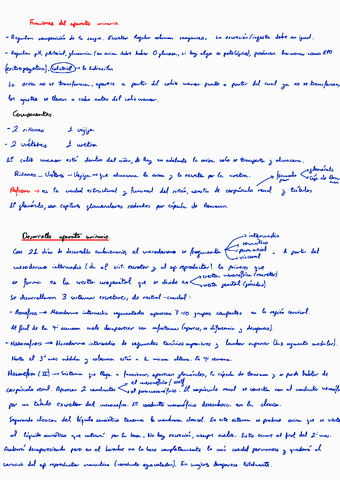 Funciones del aparato urinario.
- Regulan composición de la sangre. Excretar. Regular volumen sanguíneo. La excreción/ingesta debe ser igual.
- Regulan pH, glucemia (en orina debe haber 0 glucosa, si hay algo es patológico), producen hormonas como EPO
(eritropoyetina), calcitriol → la
La orina no se transforma, aparece a partir del cáliz menor punto a partir del cual ya no se transforma,
los ajustes se llevan a cabo antes del cáliz menor.
Componentes:
- 2 riñones 1 vejiga
- 2 uréteres 1 uretra
El cáliz menor está dentro del riñón, de hay en adelante la orina solo se transporta y almacena.
Riñones - Uréteres - Vejiga → que almacena la orina y la excreta por la uretra.
formado por
glomérulo
cáp. de Bowman
Nefrona → es la unidad estructural y funcional del riñón, consta de corpúsculo renal y túbulos
El glomérulo, son capilares glomerulares rodeados por cápsula de Bowman.
Desarrollo aparato urinario.
intermedio
somático
paraxial
visceral
Con 21 días de desarrollo embrionario, el mesodermo se fragmenta. A partir del
mesodermo intermedio (da al sist. excretor y al ap reproductor) lo primero que
se forma es la cresta urogenital que se divide en
cresta nefrógena (excretor)
cresta genital (gónadas)
Se desarrollaron 3 sistemas excretores, de craneal-caudal:
- Pronefros → Mesodermo intermedio segmentado aparecen 7-10 grupos compactos en la región cervical.
Al final de la 4ª semana suele desaparecer
- Mesonefros → Mesodermo intermedio de segmentos torácicos superiores y lumbar superior
Hasta el 3er mes
Mesonefros (II) → Sistema que llega a funcionar, aparecen glomérulos, la cápsula de Bowman y se puede hablar de
corpúsculo renal. Aparecen 2 conductos
el mesonéfrico/wolff
el paramesonéfrico
El corpúsculo renal se conecta con el conducto mesonéfrico
por un túbulo excretor del mesonefros. El conducto mesonéfrico desemboca en la cloaca.
Segregando cloaca del líquido amniótico tenemos la membrana cloacal. En este sistema se produce orina que se vierte
al líquido amniótico No hay excreción, siempre vuelve. Esto ocurre al final del 2º mes.
Acabará desapareciendo pero en el hombre no lo hace completamente la más caudal permanece y quedará al
servicio del ap reproductor masculino (conducto eyaculador). En mujeres desaparece totalmente.